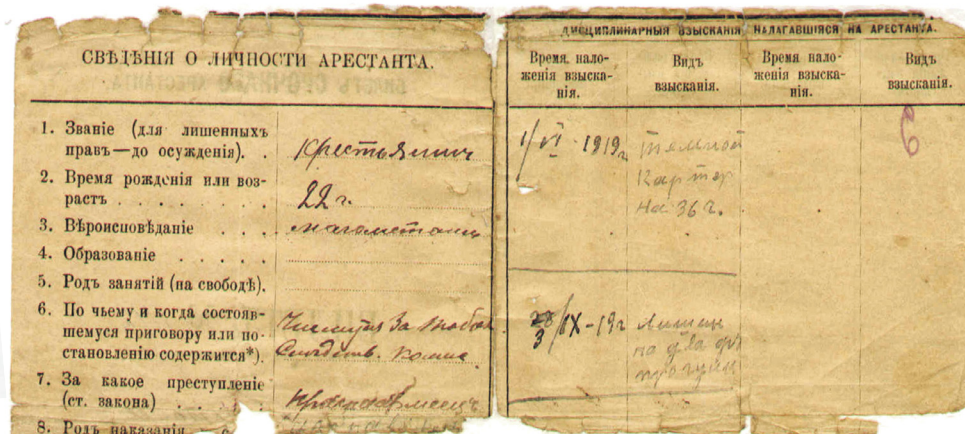 СВѢДѢНІЯ О ЛИЧНОСТИ АРЕСТАНТА.
1. Званіе (для лишенныхъ
правъ—до осужденія). . Крестьянинъ
2. Время рожденія или воз-
растъ . . . . . . . . 22 г.
3. Вѣроисповѣданіе . . . магометанинъ
4. Образованіе . . . . .
5. Родъ занятій (на свободѣ).
6. По чьему и когда состояв-
шемуся приговору или по-
становленію содержится*).
Числится за
Следств.
7. За какое преступленіе
(ст. закона) . . . . . Красноармеецъ
8. Родъ наказанія
ДИСЦИПЛИНАРНЫЯ ВЗЫСКАНІЯ НАЛАГАВШІЯСЯ НА АРЕСТАНТА.
Время нало-
женія взыска-
нія.
Видъ
взысканія.
Время нало-
женія взыска-
нія.
Видъ
взысканія.
1/VI - 1919 г. темной
Карцер
на 36 г.
/IX - 19 г Лишен
на два
прогулки